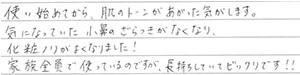 使い始めてから、肌のトーンがあがった気がします。
気になっていた小鼻のざらつきがなくなり、
化粧ノリがよくなりました！
家族全員で使っているのですが、長持ちしていてビックリです！！